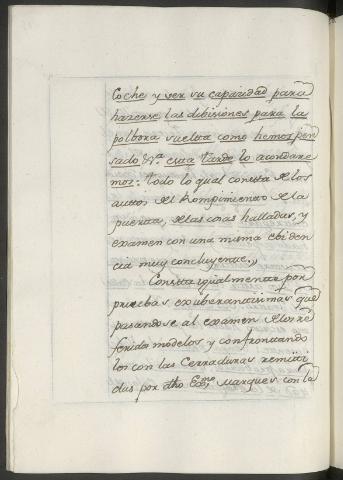 Coche y ver su capacidad para
hazerse las dibisiones para la
polbora suelta como hemos pen
sado Va. esta tarde lo acordare
mos: todo lo qual consta de los
autos del Rompimiento de la
puerta, de las cosas halladas, y
examen con una misma ebiden
cia muy concluyente.,
Consta igualmente por
pruebas exuberantisimas que
pasandose al examen de los re
feridos modelos y confrontando
los con las Cerraduras remiti
das por dho Exmo. Marques con la